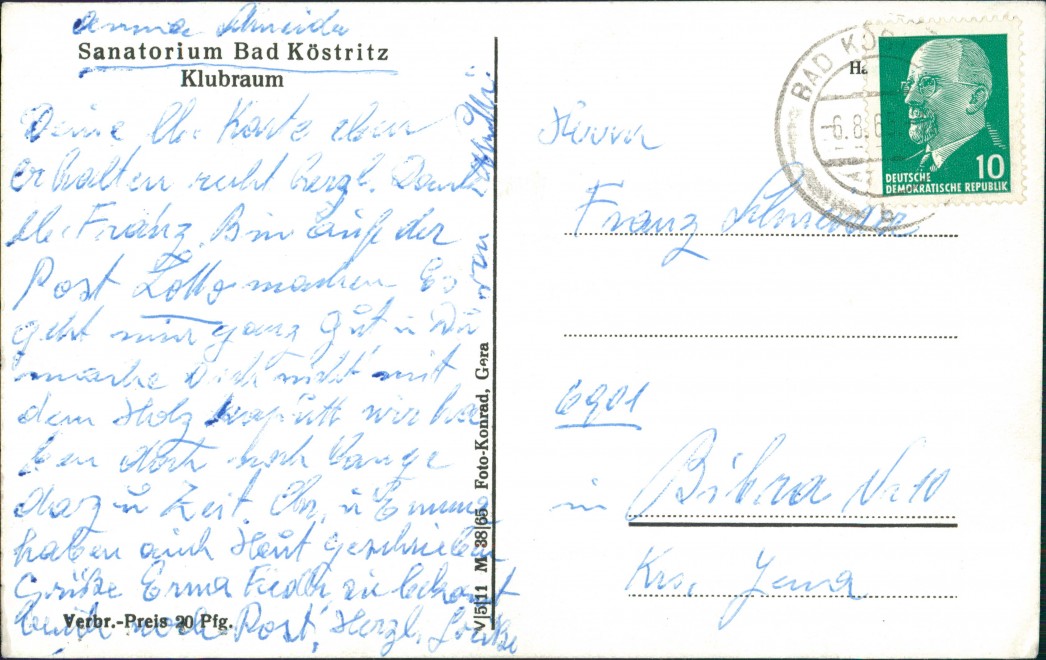 Sanatorium Bad Köstritz
Klubraum
Deine lb. Karte eben
erhalten recht herzl. Dank
lb. Franz. Bin auf der
Post Lotto machen Es
geht mir ganz gut, u Du
mache Dich nicht mit
dem Holz kaputt wir ha
ben doch noch lange
dazu Zeit. u Emma
haben auch Heut geschrieben
Grüße Erma
noch Post, Herzl. Grüße
von
Verbr.-Preis 20 Pfg.
V|5|11 M 38|65 Foto-Konrad, Gera
BAD KÖ
-6.8.65
Ha
10
DEUTSCHE
DEMOKRATISCHE REPUBLIK
Herrn
Franz
6901
in Bibra Nr 10
Krs. Jena